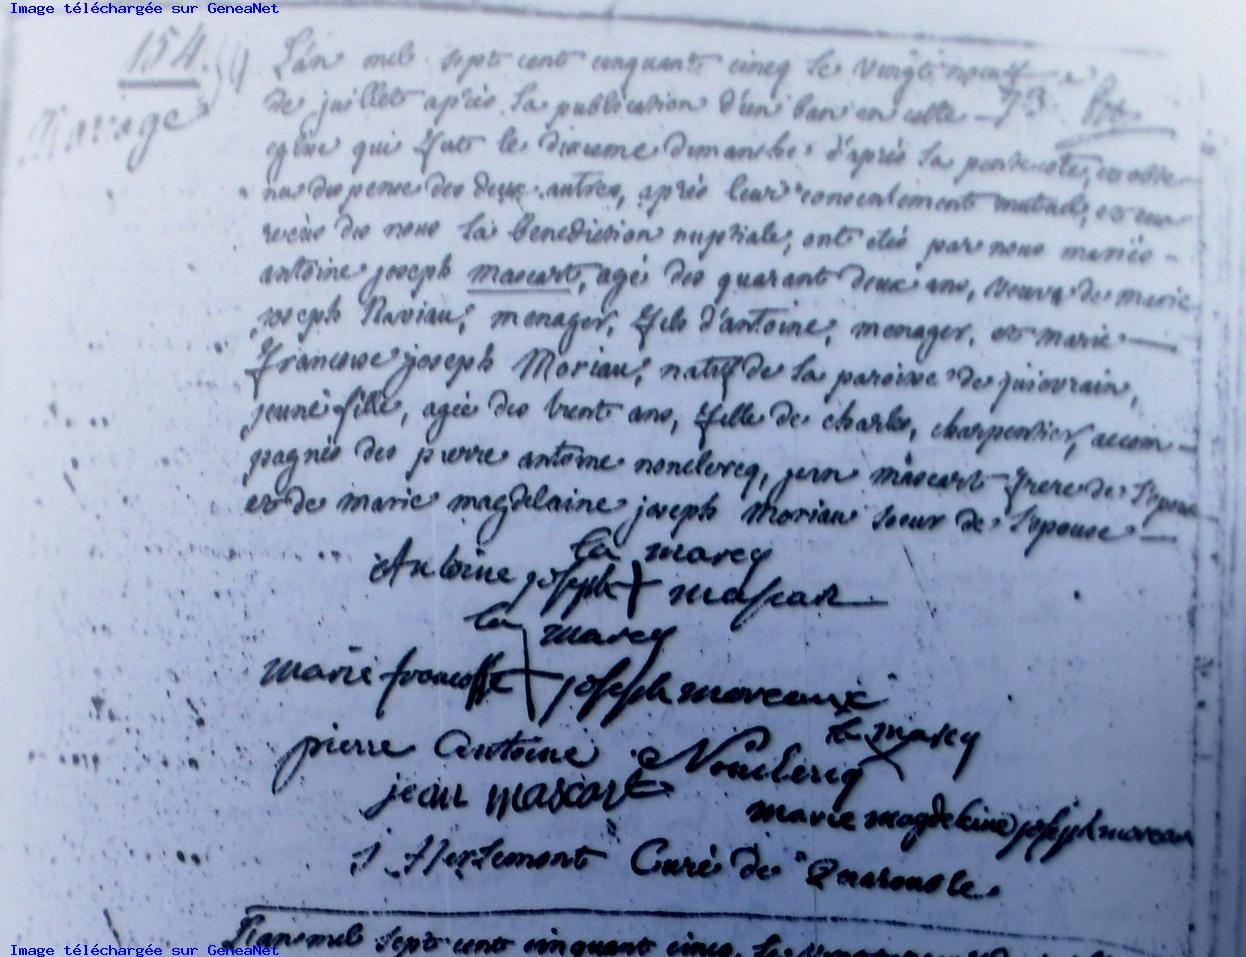 Image téléchargée sur GeneaNet
154.
Mariage
L'an mil sept cent cinquant cincq le vingt neuf
de juillet apriés la publication d'un ban en cette 73
eglise qui fut le dixieme dimanche d'après la pentecoste, et obte-
nu dispense des deux autres, après leur consentement mutuel, et eux
de nous la benediction nuptiale, ont étés par nous mariés -
antoine joseph mascart, agé des quarant deux ans, veuve de marie
joseph Raviau, menager, fils d'antoine, menager, et marie
francoise joseph Moriau, natif de la paroisse de quievrain,
jeune fille, agée des trent ans, fille de charles, charpentier, accom-
pagnés des pierre antoine nonclercq, jean mascart frere de l'epoux
et de marie magdelaine joseph moriau soeur de l'epouse
la marcq
Antoine joseph + mascar
la marcq
marie francoisse + joseph moreaux
pierre Antoine Nonclercq
la marcq
jean mascart
marie magdeleine joseph moreau
Curé de Quarouble
L'an mil sept cent cinquant cincq,
Image téléchargée sur GeneaNet